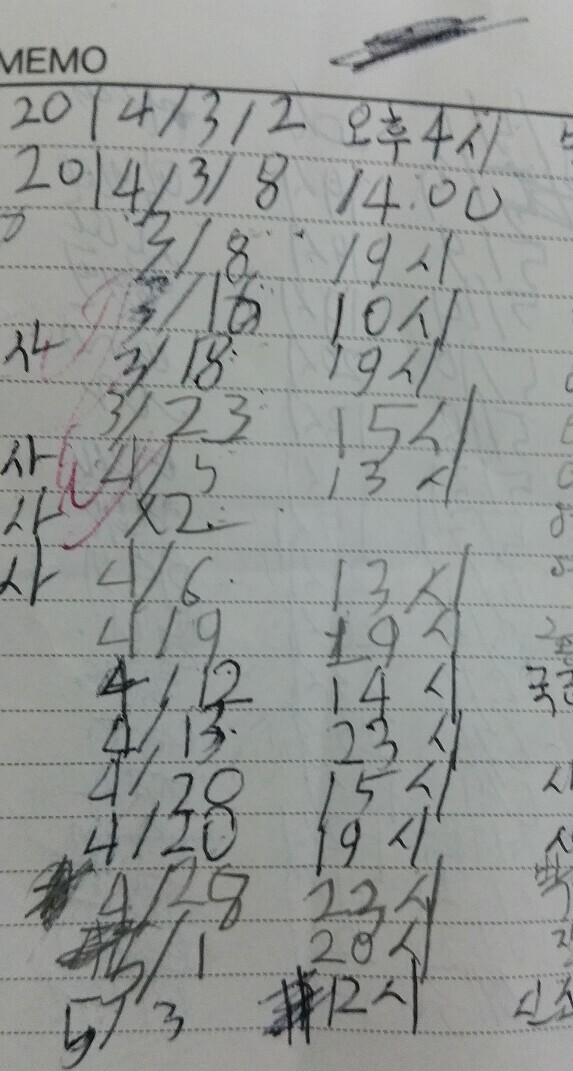 MEMO
2014/3/2 오후4시
2014/3/8 14.00
3/8 19시
3/16 10시
사 3/18 19시
3/23 15시
사 4/5 13시
사 X2
사 4/6 13시
4/9 19시
4/12 14시
4/13 23시
4/20 15시
4/20 19시
4/28 22시
5/1 20시
5/3 12시